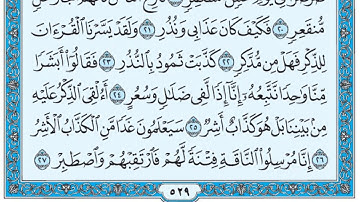 مُّنقَعِرٍ ٢٠ فَكَيْفَ كَانَ عَذَابِى وَنُذُرِ ٢١ وَلَقَدْ يَسَّرْنَا ٱلْقُرْءَانَ
لِلذِّكْرِ فَهَلْ مِن مُّدَّكِرٍ ٢٢ كَذَّبَتْ ثَمُودُ بِٱلنُّذُرِ ٢٣ فَقَالُوٓا۟ أَبَشَرًا
مِّنَّا وَٰحِدًا نَّتَّبِعُهُۥٓ إِنَّآ إِذًا لَّفِى ضَلَٰلٍ وَسُعُرٍ ٢٤ أَءُلْقِىَ ٱلذِّكْرُ عَلَيْهِ
مِنۢ بَيْنِنَا بَلْ هُوَ كَذَّابٌ أَشِرٌ ٢٥ سَيَعْلَمُونَ غَدًا مَّنِ ٱلْكَذَّابُ ٱلْأَشِرُ
٢٦ إِنَّا مُرْسِلُوا۟ ٱلنَّاقَةِ فِتْنَةً لَّهُمْ فَٱرْتَقِبْهُمْ وَٱصْطَبِرْ ٢٧
٥٢٩